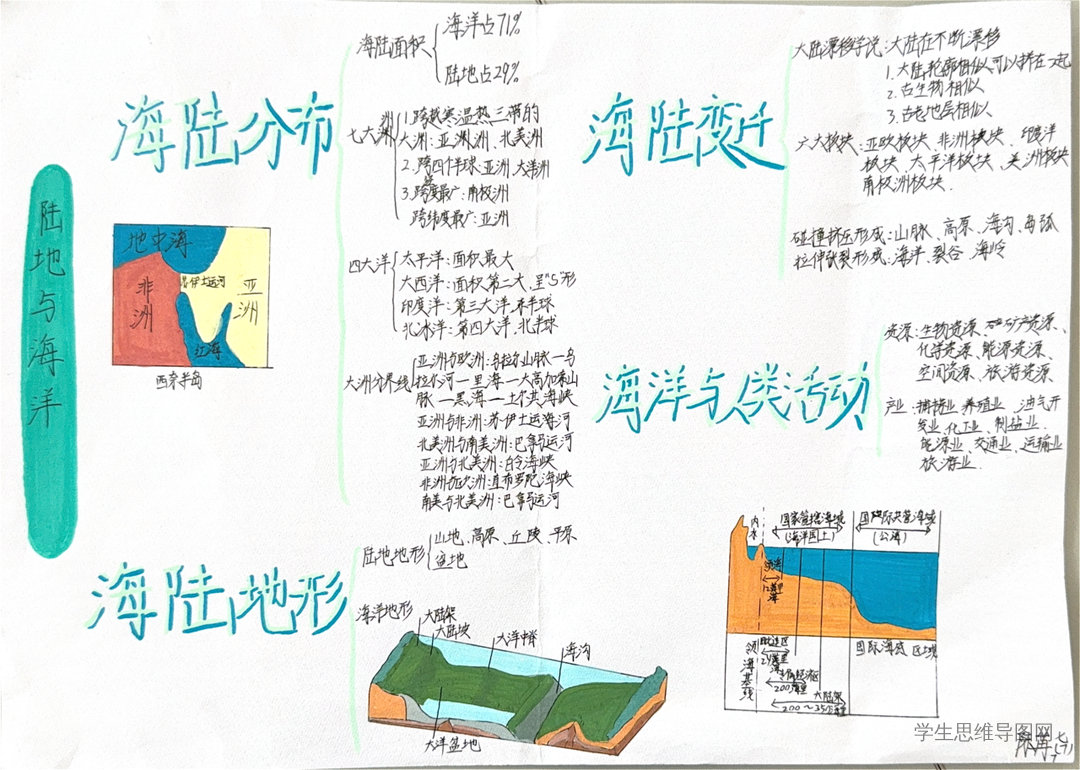 陆地与海洋
海陆分布
海陆面积
海洋占71%
陆地占29%
七大洲
1.跨越寒温热三带的
大洲:亚洲、北美洲
2.跨四个半球:亚洲、大洋洲
3.跨度最广:南极洲
跨纬度最广:亚洲
四大洋
太平洋:面积最大
大西洋:面积第二大,呈"S"形
印度洋:第三大洋
北冰洋:第四大洋,北半球
大洲分界线
亚洲与欧洲:乌拉尔山脉—乌
拉尔河—里海—大高加索山
脉—黑海—土耳其海峡
亚洲与非洲:苏伊士运河
北美洲与南美洲:巴拿马运河
亚洲与北美洲:白令海峡
非洲与欧洲:直布罗陀海峡
南美与北美洲:巴拿马运河
地中海
非洲
苏伊士运河
亚洲
红海
西奈半岛
海陆地形
陆地地形
山地、高原、丘陵、平原
盆地
海洋地形
大陆架
大陆坡
大洋中脊
海沟
大洋盆地
海陆变迁
大陆漂移学说:大陆在不断漂移
1.大陆轮廓相似可以拼在一起
2.古生物相似
3.古老地层相似
六大板块:亚欧板块、非洲板块、印度洋
板块、太平洋板块、美洲板块
南极洲板块.
碰撞挤压形成:山脉、高原、海沟、岛弧
拉伸张裂形成:海洋、裂谷、海岭
海洋与人类活动
资源:生物资源、矿产资源、
化学资源、能源资源、
空间资源、旅游资源
产业:捕捞业、养殖业、油气开
发业、化工业、制盐业、
能源业、交通业、运输业
旅游业.
内水
国家管辖海域
(海洋国土)
国际共管海域
(公海)
领海
12海里
领海基线
毗连区
24海里
专属经济区
200海里
大陆架
200~350海里
国际海底区域
学生思维导图网